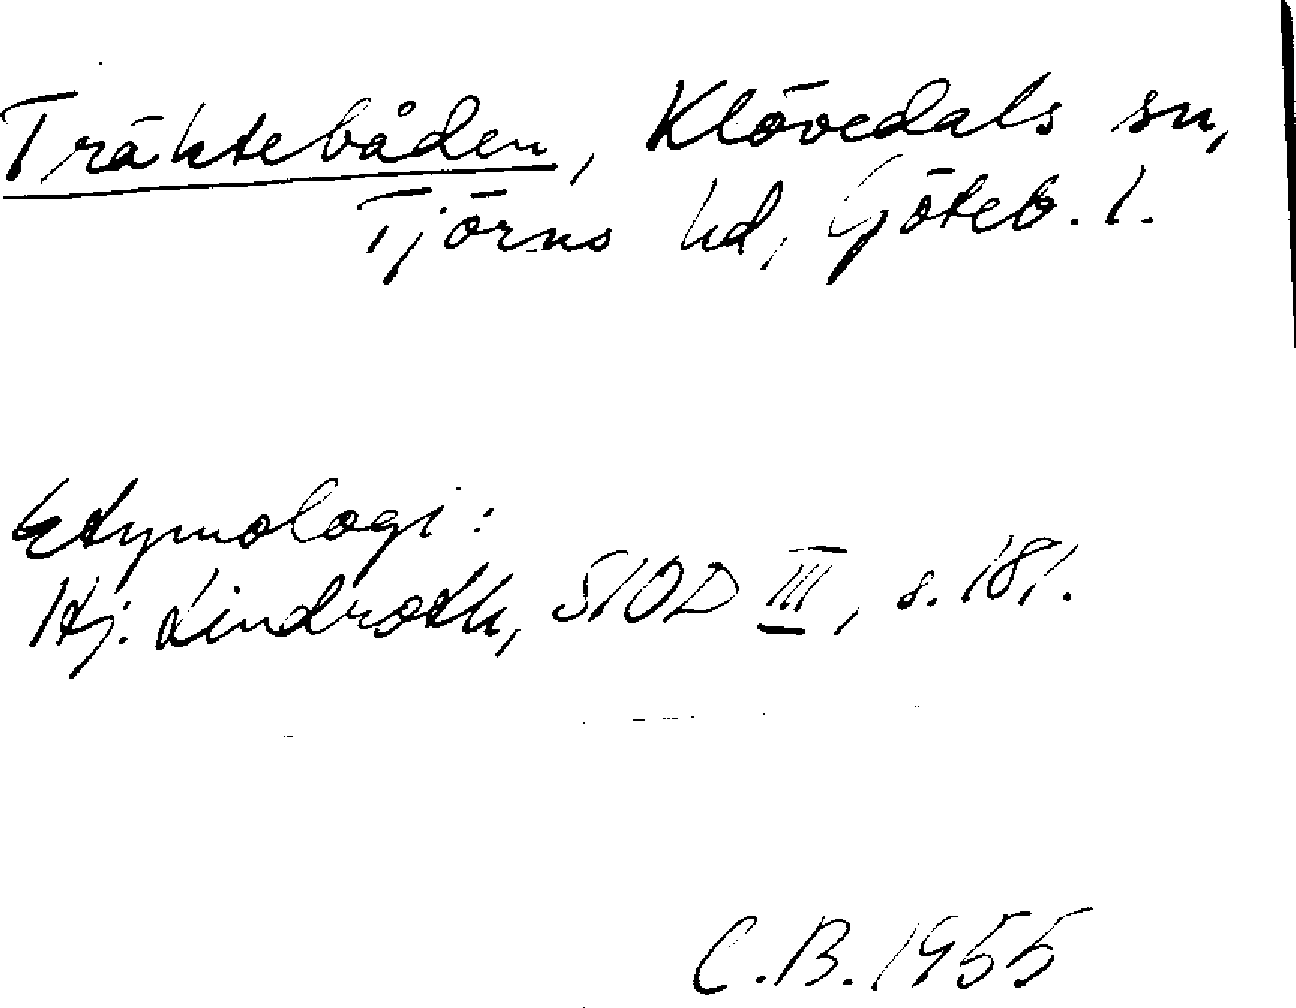 Träktebåden, Klövedals sn,
Tjörns hd, Göteb. l.
Etymologi:
Hj. Lindroth, SIOD III, s. 181.
C.B. 1955